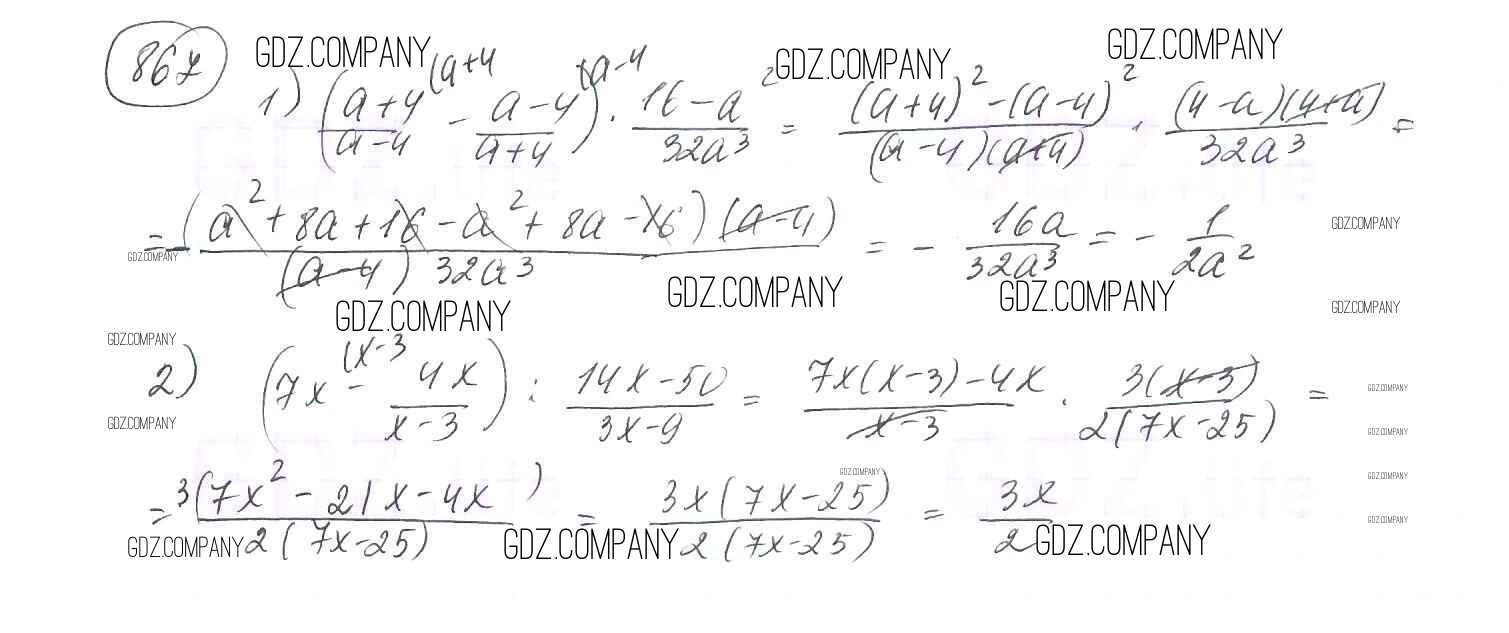 867 GDZ.COMPANY GDZ.COMPANY GDZ.COMPANY
1) ((a+4)/(a-4) ^(a+4 - (a-4)/(a+4) ^(a-4) · (16-a²)/(32a³) = ((a+4)²-(a-4)²)/((a-4)(a+4)) · ((4-a)(4+a))/(32a³) =
= - ((a²+8a+16-a²+8a-16)(a-4))/((a-4) 32a³) = - 16a/(32a³) = - 1/(2a²) GDZ.COMPANY
GDZ.COMPANY GDZ.COMPANY GDZ.COMPANY
GDZ.COMPANY GDZ.COMPANY
GDZ.COMPANY
2) (7x ^(x-3 - 4x/(x-3)) : (14x-50)/(3x-9) = (7x(x-3)-4x)/(x-3) · (3(x-3))/(2(7x-25)) = GDZ.COMPANY
GDZ.COMPANY GDZ.COMPANY
= (3(7x²-21x-4x))/(2(7x-25)) = (3x(7x-25))/(2(7x-25)) = 3x/2 GDZ.COMPANY GDZ.COMPANY
GDZ.COMPANY
GDZ.COMPANY GDZ.COMPANY GDZ.COMPANY